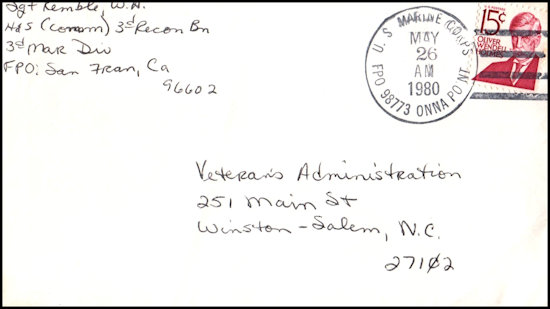 Sgt Kemble, W.H.
H&S (Comm) 3d Recon Bn
3d Mar Div
FPO: San Fran, Ca
96602
U.S. MARINE CORPS
MAY
26
AM
1980
FPO 98773 ONNA POINT
15¢
OLIVER
WENDELL
HOLMES
Veterans Administration
251 Main St
Winston-Salem, N.C.
27102